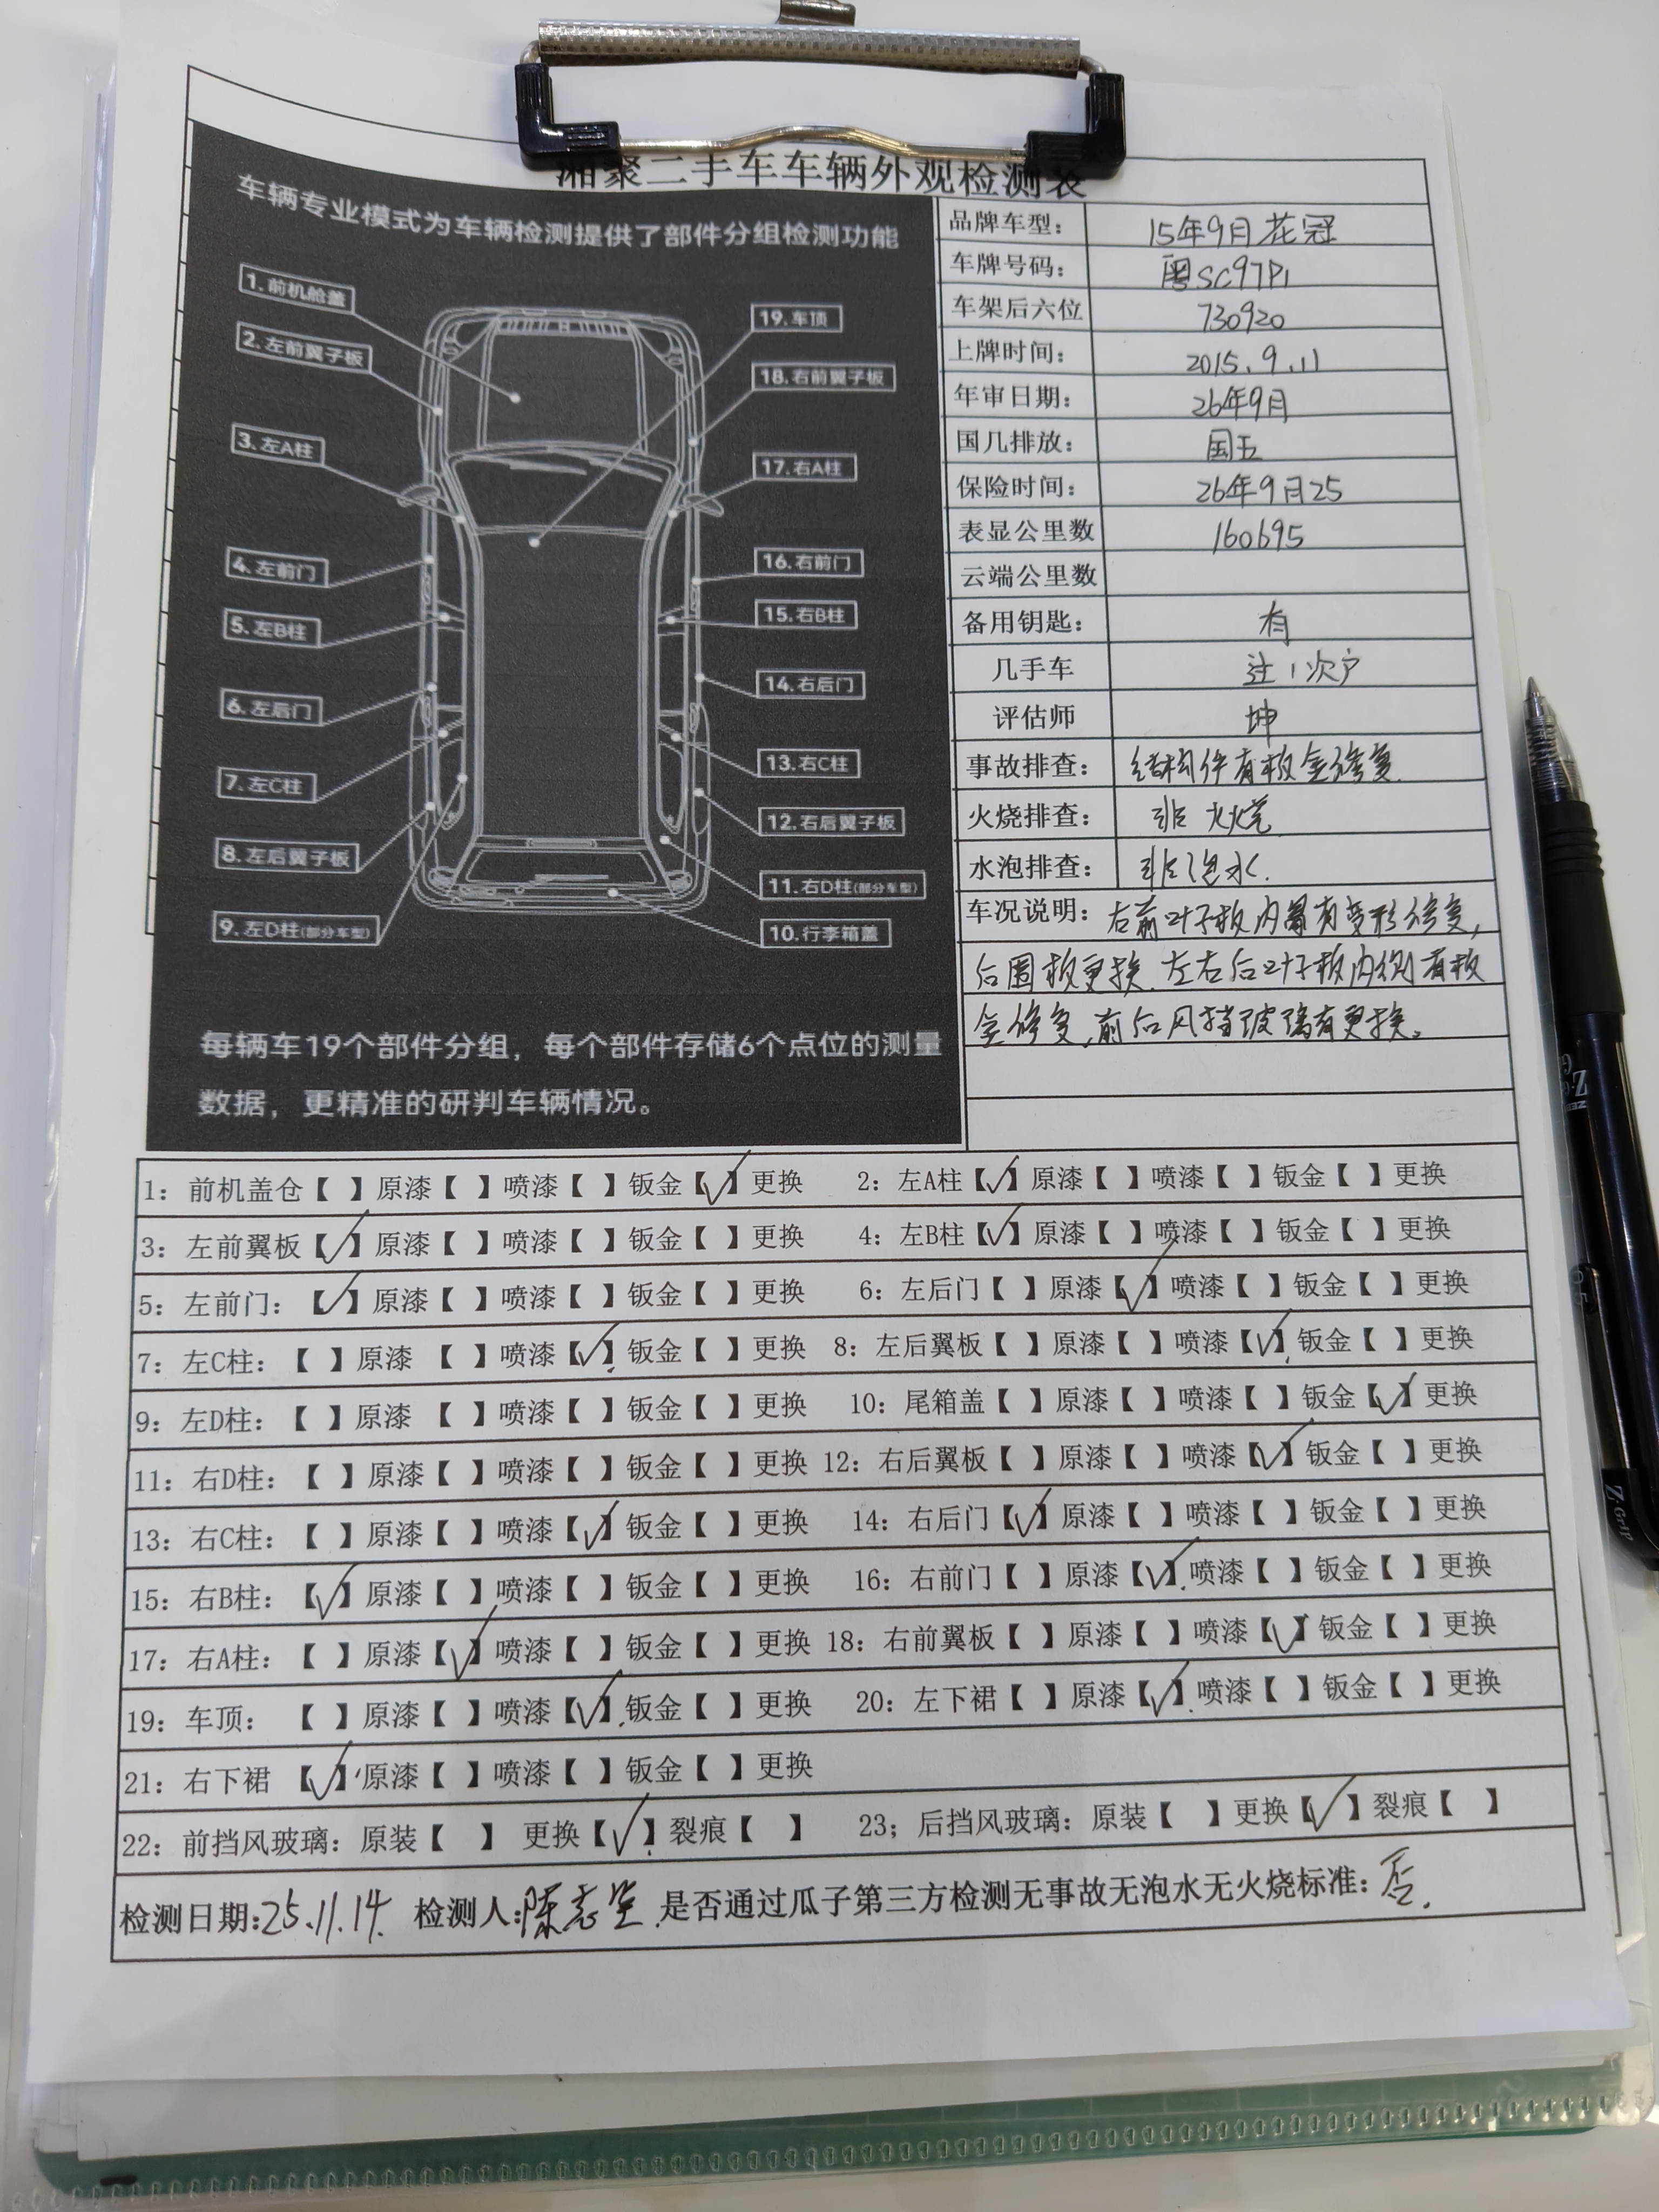 湘聚二手车车辆外观检测表
车辆专业模式为车辆检测提供了部件分组检测功能
1.前机舱盖
2.左前翼子板
3.左A柱
4.左前门
5.左B柱
6.左后门
7.左C柱
8.左后翼子板
9.左D柱(部分车型)
19.车顶
18.右前翼子板
17.右A柱
16.右前门
15.右B柱
14.右后门
13.右C柱
12.右后翼子板
11.右D柱(部分车型)
10.行李箱盖
每辆车19个部件分组，每个部件存储6个点位的测量
数据，更精准的研判车辆情况。
品牌车型： 15年9月花冠
车牌号码： 粤SC97P1
车架后六位 730920
上牌时间： 2015.9.11
年审日期： 26年9月
国几排放： 国五
保险时间： 26年9月25
表显公里数 160695
云端公里数
备用钥匙： 有
几手车 过1次户
评估师 坤
事故排查： 结构件有钣金修复.
火烧排查： 非火烧
水泡排查： 非泡水.
车况说明： 右前叶子板内骨有变形修复,
后围板更换.左右后叶子板内侧有钣
金修复,前后风挡玻璃有更换。
1：前机盖仓【 】原漆【 】喷漆【 】钣金【✓】更换 2：左A柱【✓】原漆【 】喷漆【 】钣金【 】更换
3：左前翼板【✓】原漆【 】喷漆【 】钣金【 】更换 4：左B柱【✓】原漆【 】喷漆【 】钣金【 】更换
5：左前门：【✓】原漆【 】喷漆【 】钣金【 】更换 6：左后门【 】原漆【✓】喷漆【 】钣金【 】更换
7：左C柱：【 】原漆 【 】喷漆【✓】钣金【 】更换 8：左后翼板【 】原漆【 】喷漆【✓】钣金【 】更换
9：左D柱：【 】原漆 【 】喷漆【 】钣金【 】更换 10：尾箱盖【 】原漆【 】喷漆【 】钣金【✓】更换
11：右D柱：【 】原漆【 】喷漆【 】钣金【 】更换 12：右后翼板【 】原漆【 】喷漆【✓】钣金【 】更换
13：右C柱：【 】原漆【 】喷漆【✓】钣金【 】更换 14：右后门【✓】原漆【 】喷漆【 】钣金【 】更换
15：右B柱：【✓】原漆【 】喷漆【 】钣金【 】更换 16：右前门【 】原漆【✓】喷漆【 】钣金【 】更换
17：右A柱：【 】原漆【✓】喷漆【 】钣金【 】更换 18：右前翼板【 】原漆【 】喷漆【✓】钣金【 】更换
19：车顶： 【 】原漆【 】喷漆【✓】钣金【 】更换 20：左下裙【 】原漆【✓】喷漆【 】钣金【 】更换
21：右下裙 【✓】原漆【 】喷漆【 】钣金【 】更换
22：前挡风玻璃：原装【 】 更换【✓】裂痕【 】 23；后挡风玻璃：原装【 】更换【✓】裂痕【 】
检测日期：25.11.14. 检测人：陈志 是否通过瓜子第三方检测无事故无泡水无火烧标准：否.
Z-Grip